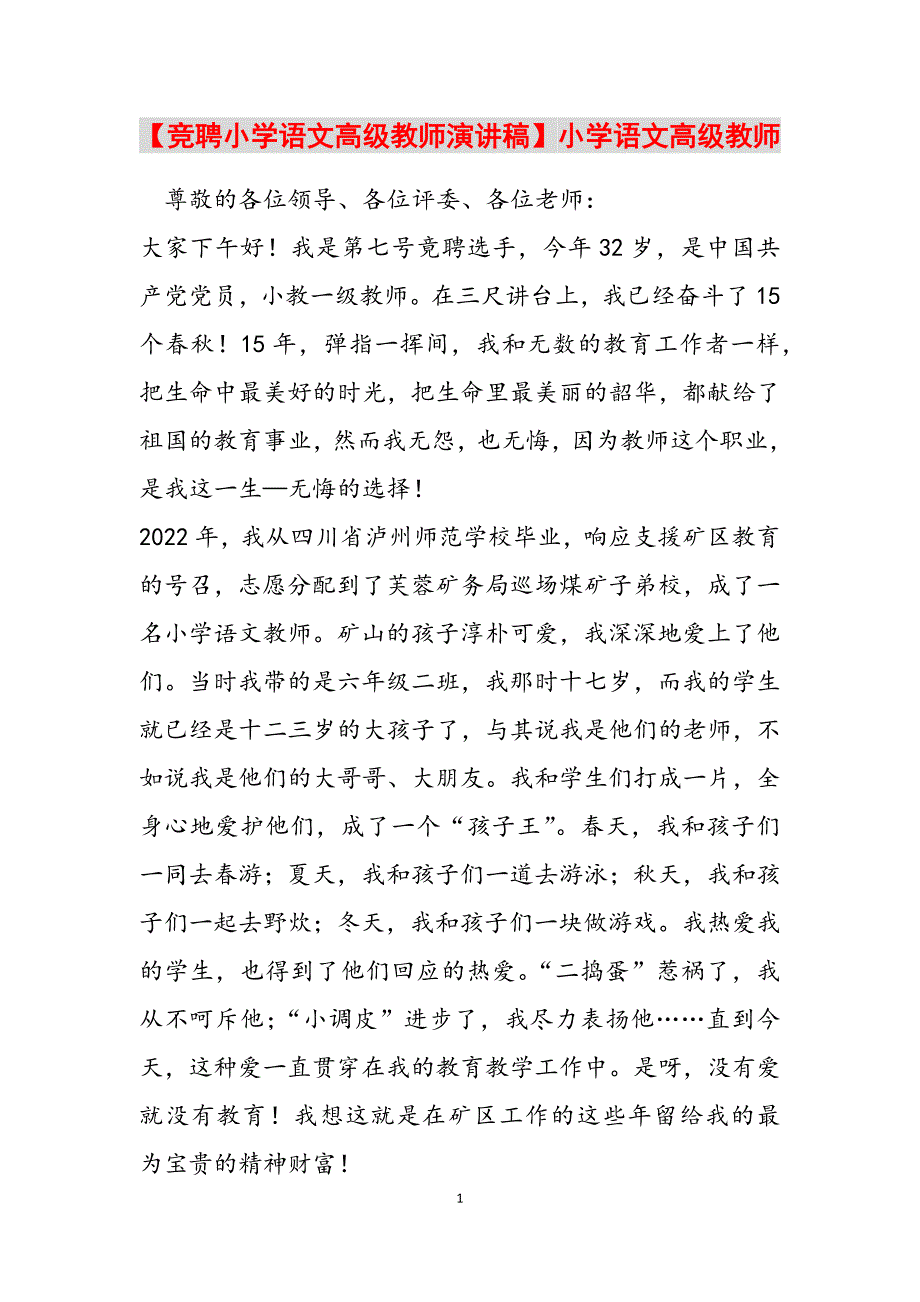 【竞聘小学语文高级教师演讲稿】小学语文高级教师
尊敬的各位领导、各位评委、各位老师：
大家下午好！我是第七号竟聘选手，今年 32 岁，是中国共
产党党员，小教一级教师。在三尺讲台上，我已经奋斗了 15
个春秋！15 年，弹指一挥间，我和无数的教育工作者一样，
把生命中最美好的时光，把生命里最美丽的韶华，都献给了
祖国的教育事业，然而我无怨，也无悔，因为教师这个职业，
是我这一生—无悔的选择！
2022 年，我从四川省泸州师范学校毕业，响应支援矿区教育
的号召，志愿分配到了芙蓉矿务局巡场煤矿子弟校，成了一
名小学语文教师。矿山的孩子淳朴可爱，我深深地爱上了他
们。当时我带的是六年级二班，我那时十七岁，而我的学生
就已经是十二三岁的大孩子了，与其说我是他们的老师，不
如说我是他们的大哥哥、大朋友。我和学生们打成一片，全
身心地爱护他们，成了一个“孩子王”。春天，我和孩子们
一同去春游；夏天，我和孩子们一道去游泳；秋天，我和孩
子们一起去野炊；冬天，我和孩子们一块做游戏。我热爱我
的学生，也得到了他们回应的热爱。“二捣蛋”惹祸了，我
从不呵斥他；“小调皮”进步了，我尽力表扬他……直到今
天，这种爱一直贯穿在我的教育教学工作中。是呀，没有爱
就没有教育！我想这就是在矿区工作的这些年留给我的最
为宝贵的精神财富！
1